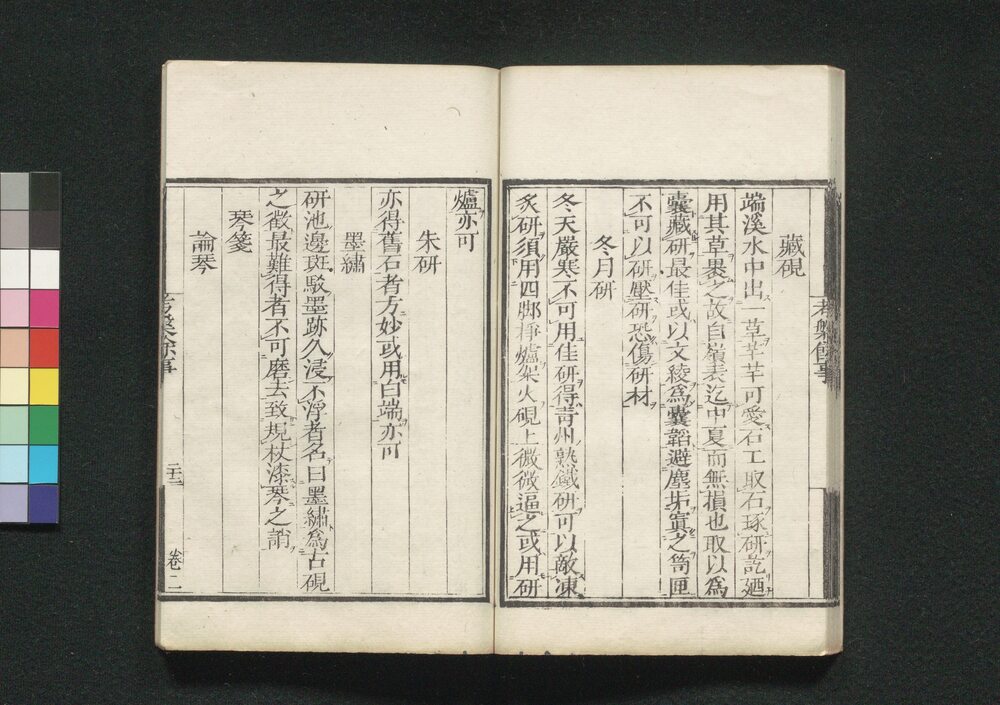 藏硯
端溪水中出一草芊芊可愛石工取石琢研訖廼
用其草裹之故自嶺表迄中夏而無損也取以爲
囊藏研最佳或以文綾爲囊韜避塵垢寘之笥匣
不可以研壓研恐傷研材
冬月研
冬天嚴寒不可用佳研得青州熟鐵研可以敵凍
炙研須用四脚挣爐架火硯上微微逼之或用研
考槃餘事
爐亦可
朱研
亦得舊石者方妙或用白端亦可
墨繡
研池邊斑駁墨跡久浸不浮者名曰墨繡爲古硯
之徵最難得者不可磨去致規杖漆琴之誚
琴箋
論琴
考槃餘事
卷二